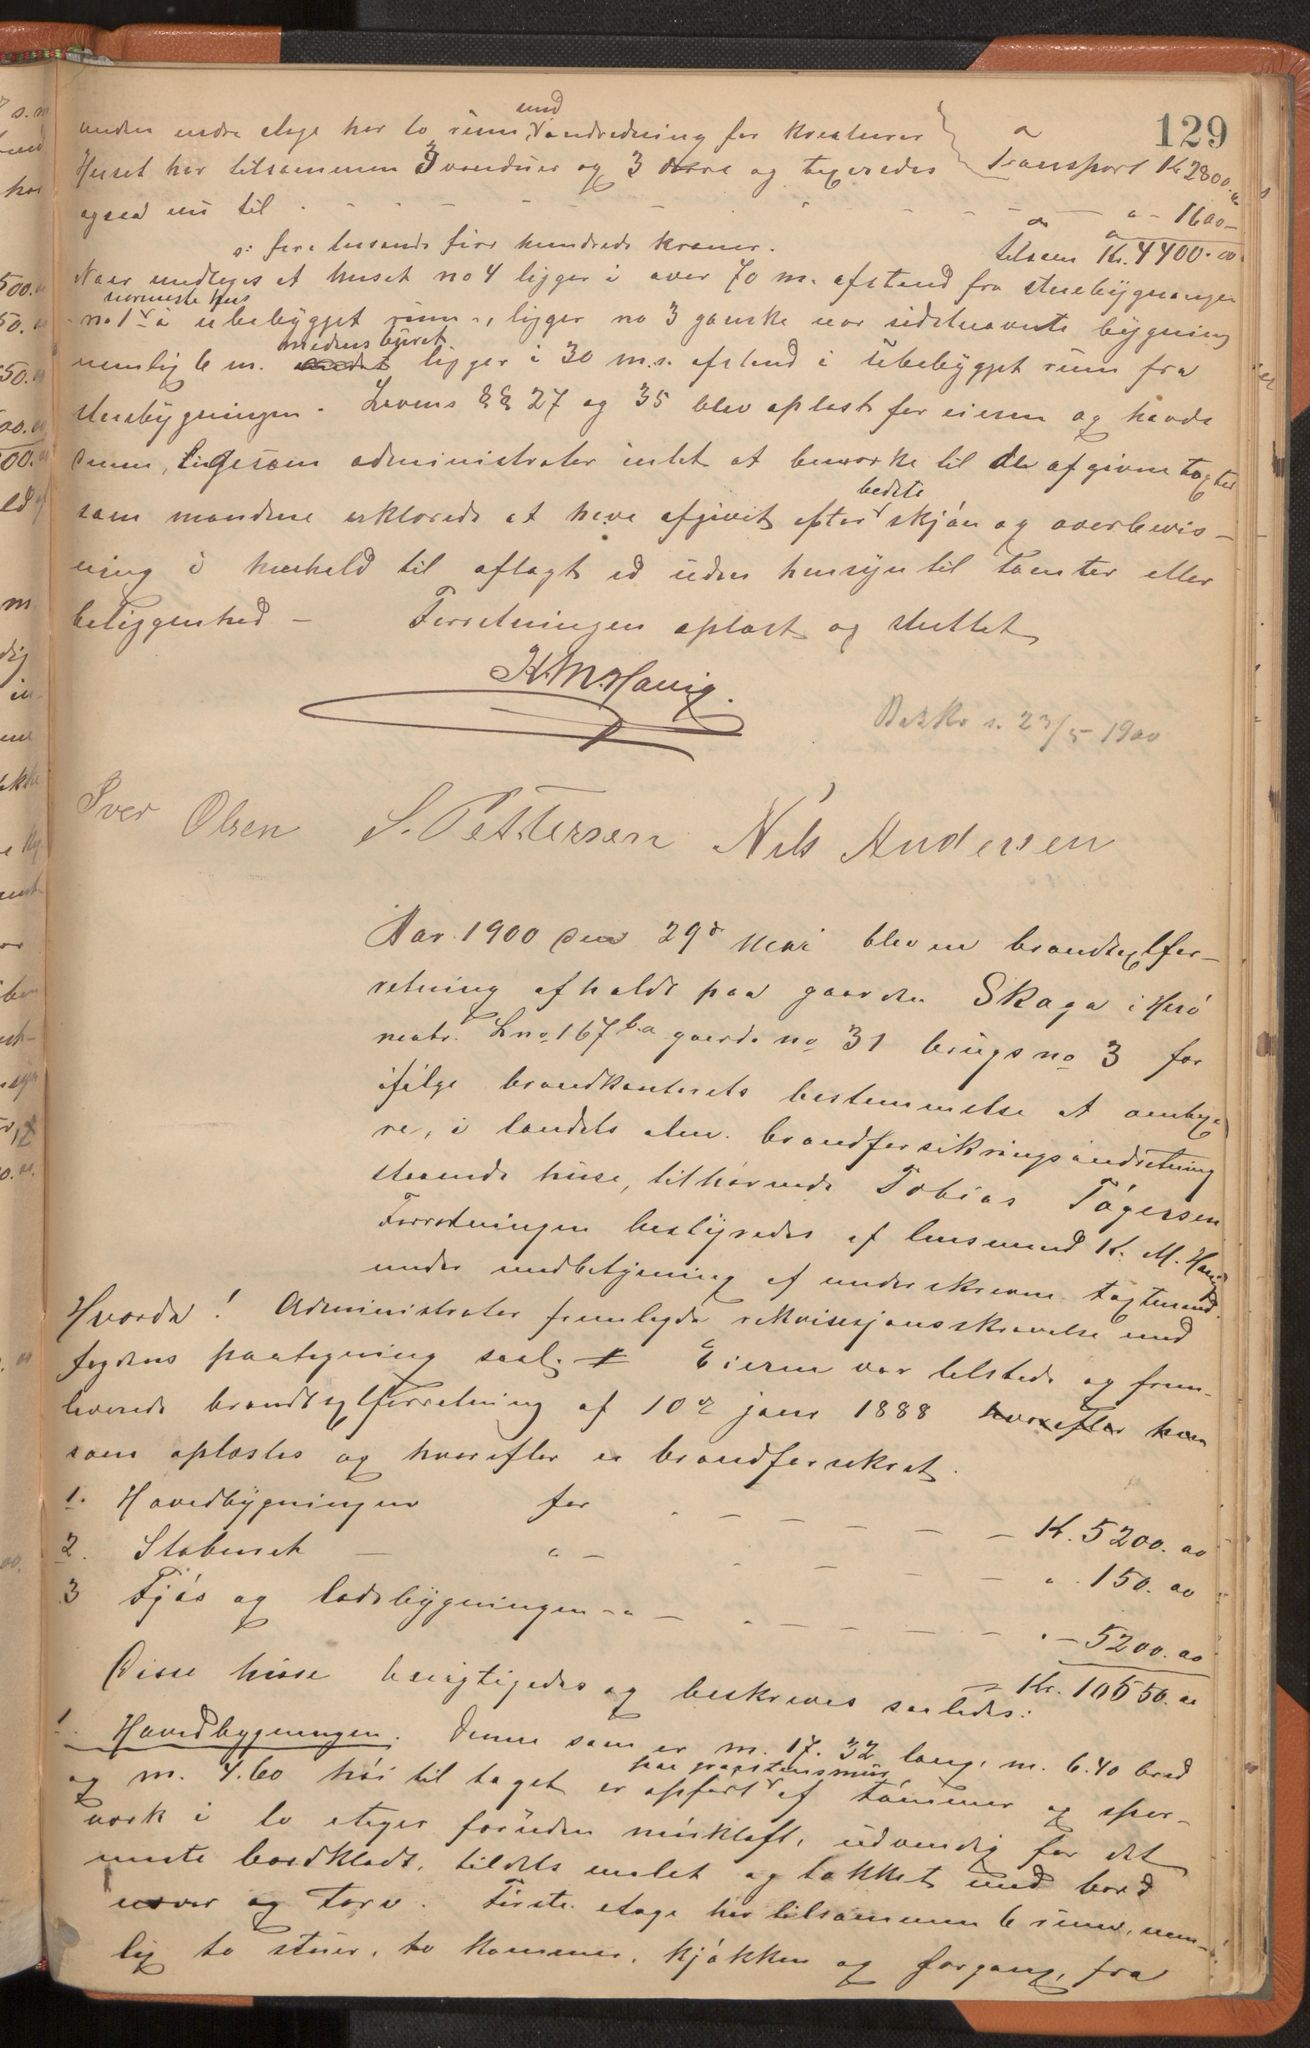 129
anden endre etage har to rum med indredning for kreaturer
Transport Kr 2800.
Huset har tilsammen 3 vinduer og 3 døre og taxeredes
ogsaa nu til - - - - - - - - - 1600 -
o: fire tusende fire hundrede kroner. tilsam Kr. 4400.00
Naar undtages at huset no 4 ligger i over 70 m. afstand fra stuebygningen
no 1 nærmeste hus i ubebygget rum -, ligger no 3 ganske nær sidstnævnte bygning
nemlig 6 m. medens buret ligger i 30 m.s. afstand i ubebygget rum fra
stuebygningen. Lovens §§ 27 og 35 blev oplæst for eieren og havde
denne, ligesom administrator intet at bemærke til de afgivne taxter
som mændene erklærede at have afgivet efter bedste skjøn og overbevis-
ning i henhold til aflagt ed uden hensyn til tomter eller
beliggenhed - Forretningen oplæst og sluttet
K. M. Havig.
Beskr s. 23/5 - 1900
Iver Olsen S. Pettersen Nils Andersen
Aar 1900 den 29de mai blev en brandtaxtfor-
retning afholdt paa gaarden Skaga i Herø
matr. Lno 167 b.a gaards no 31 brugs no 3 for
ifølge brandkontorets bestemmelse at omtaxe-
re, i landets alm. brandforsikringsindretning
staaende huse, tilhørende Tobias Tøgersen
Forretningen bestyredes af lensmand K. M. Havig
under medbetjening af underskrevne taxtmænd.
Hvorda! Administrator fremlagde rekvisisjonsskrivelse med
fogdens paategning saal. Eieren var tilstede og frem-
leverede brandtaxtforretning af 10de jans 1888 hvorefter hvor
som oplæstes og hvorefter er brandforsikret.
1. Hovedbygningen for - - - - - Kr. 5200.00
2. Staburet - " - - - - - " 150.00
3 Fjøs og ladebygningen - " - - - - - " - 5200.00
Disse huse besigtigedes og beskreves saaledes: Kr. 10550.00
1. Hovedbygningen. Denne som er m. 17.32 lang, m. 6.40 bred
og m. 4.60 høi til taget er opført paa graastensmur af tømmer og sper-
værk i to etager foruden mørkloft, udvendig for det
meste bordklædt, tildels malet og tækket med bord
never og torv. Første etage har tilsammen 6 rum, nem-
lig to stuer, to kammer, kjøkken og forgang, fra